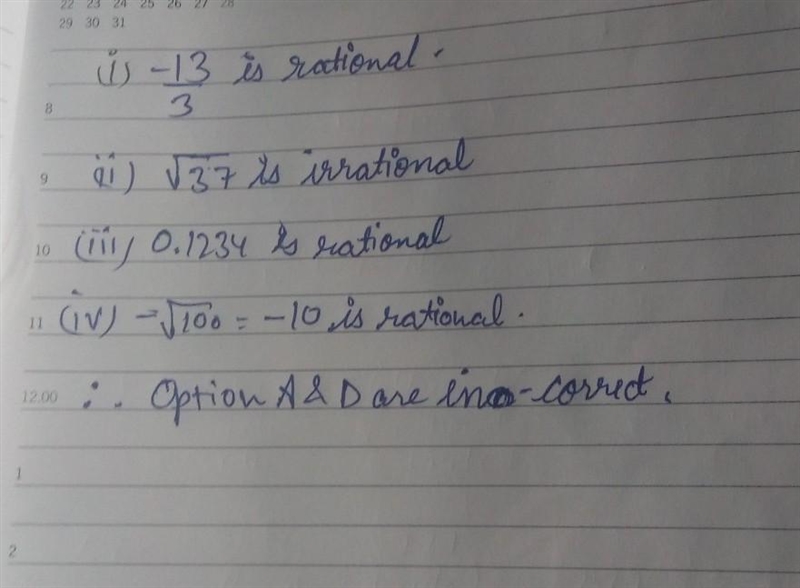 22 23 24 25 26 27 28
29 30 31
(i) -13/3 is rational.
8
9 ii) √37 is irrational
10 (iii) 0.1234 is rational
11 (iv) -√100 = -10 is rational.
12.00 ∴ Option A & D are in-correct.
1
2